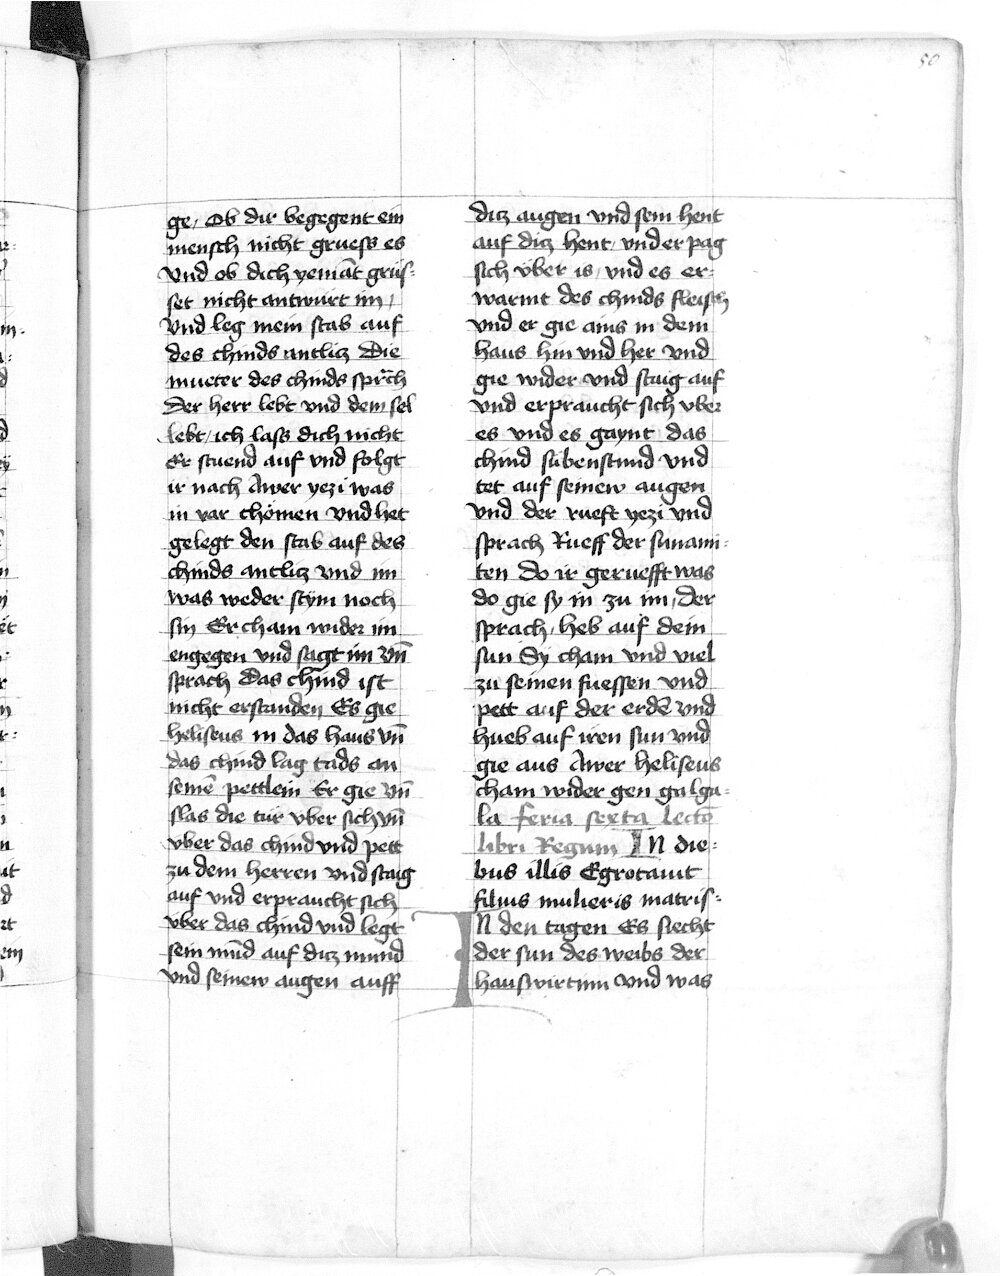 50
ge / Ob dir begegent ein
mensch nicht gruess es
Vnd ob dich yemāt grüs-
set nicht antwurt im /
Vnd leg mein stab auf
des chinds antlicz Die
mueter des chinds sprach
Der herr lebt vnd dein sel
lebt / ich lass dich nicht
Er stuend auf vnd folgt
ir nach Awer yezi was
in vor chömen vnd het
gelegt den stab auf des
chinds antlicz vnd im
was weder stym noch
sin Er cham wider im
engegen vnd sagt im vn̄
sprach Das chind ist
nicht erstanden Es gie
heliseus in das haus vn̄
das chind lag tads an
seinē pettlein Er gie vn̄
slas die tür vber sich vn̄
vber das chind vnd pett
zu dem herren vnd staig
auf vnd erpraucht sich
vber das chind vnd legt
sein mūd auf dicz mund
vnd seinew augen auff
dicz augen vnd sein hent
auf dicz hent / vnd er pag
sich vber is / vnd es er-
warmt des chinds fleisch
vnd er gie ains in dem
haus hin vnd her vnd
gie wider vnd staig auf
vnd erpraucht sich vber
es vnd es gaynt das
chind sibenstund vnd
tet auf seinew augen
vnd der rueft yezi vnd
sprach Rueff der sunami-
ten Do ir geruefft was
do gie sy in zu im / Der
sprach / heb auf dein
sun Sy cham vnd viel
zu seinen fuessen vnd
pett auf der erdē vnd
hueb auf iren sun vnd
gie aus Awer heliseus
cham wider gen galga-
la feria sexta lectō
libri Regum IN die-
bus illis Egrotauit
filius mulieris matris-
IN den tagen Es siecht
der sun des weibs der
hauswirtinn vnd was